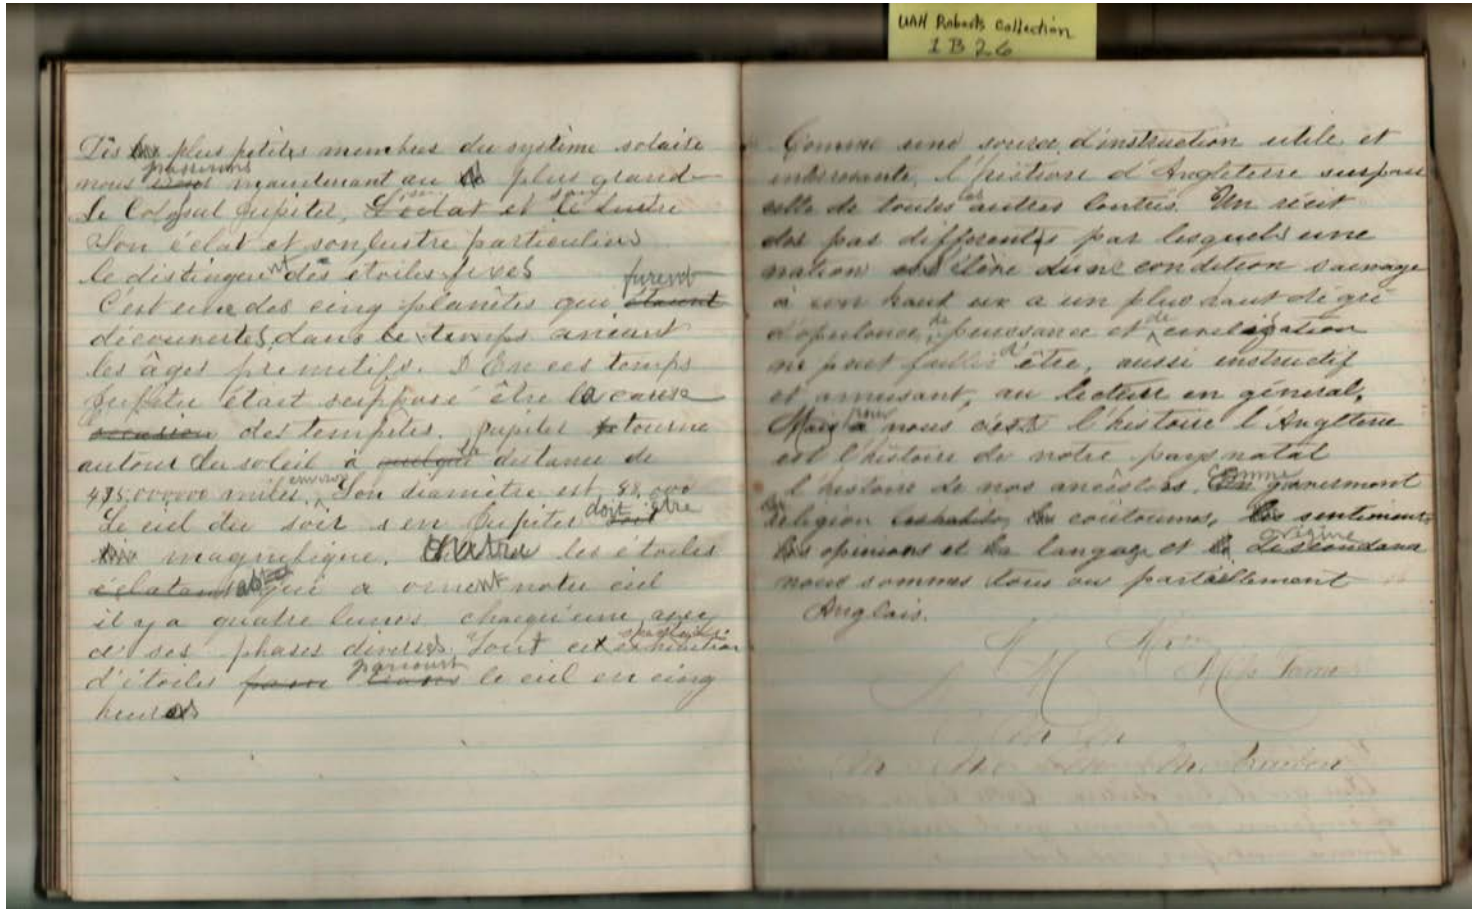 UAH Roberts Collection
1 B 26
Des plus petites membres du système solaire
passerons
nous maintenant au plus grand
Le Colosal Jupiter, L'éclat et le lustre
Son éclat et son lustre particuliers
le distinguent des étoiles fixes
furent
C'est une des cinq planètes qui étaient
découvertes dans le temps ancient
les âges primitifs. En ces temps
Jupiter était supposé être la cause
occasion des tempêtes. Jupiter tourne
autour du soleil à quelque distance de
environ
475,000000 miles. Son diamètre est 88,000
doit être
Le ciel du soir en Jupiter doit
magnifique. les étoiles
éclatants qui ornent notre ciel
il y a quatre lunes chaqu'une avec
spectacle
ses phases diverses. Tout cet exhibition
parcourt
d'étoiles le ciel en cinq
heures
Comme une source d'instruction utile et
intéressante, l'histoire d'Angleterre surpass
celle de toutes autres contrées. Un récit
des pas differents par lesquels une
nation élève d'une condition sauvage
à un haut ux a un plus haut dégré
d'opulence, de puissance et de civilization
ne peut faillir d'être, aussi instructif
et amusant, au lecteur en général,
pour
Mais à nous c'est l'histoire l'Anglterre
est l'histoire de notre pays natal
l'histoire de nos ancêstors. Comme gouvernment
religion coutoumes, les sentiments
origine
les opinions et la langage et la Descendans
nous sommes tous ou partiellement
Anglais.